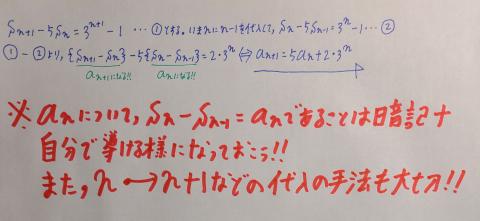 Sn+1-5Sn=3^{n+1}-1 …①とする。いまnにn-1を代入して、Sn-5Sn-1=3^n-1…②
①-②より、{Sn+1-Sn}-5{Sn-Sn-1}=2・3^n⇔an+1=5an+2・3^n
an+1になる!! anになる!!
※anについて、Sn-Sn-1=anであることは暗記+
自分で導ける様になっておこう!!
また、n→n+1などの代入の手法も大切!!